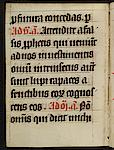 psimura concedas. p
Ad b'. a. Attendite a fal
sis prophetis qui ueniūt
ad uos in uestimentis
ouium intrinsecus aūt
sunt lupi rapaces a
fructibus eor cognos
cetis eos. Ad m. a. Nō
omnis qui dicit michi